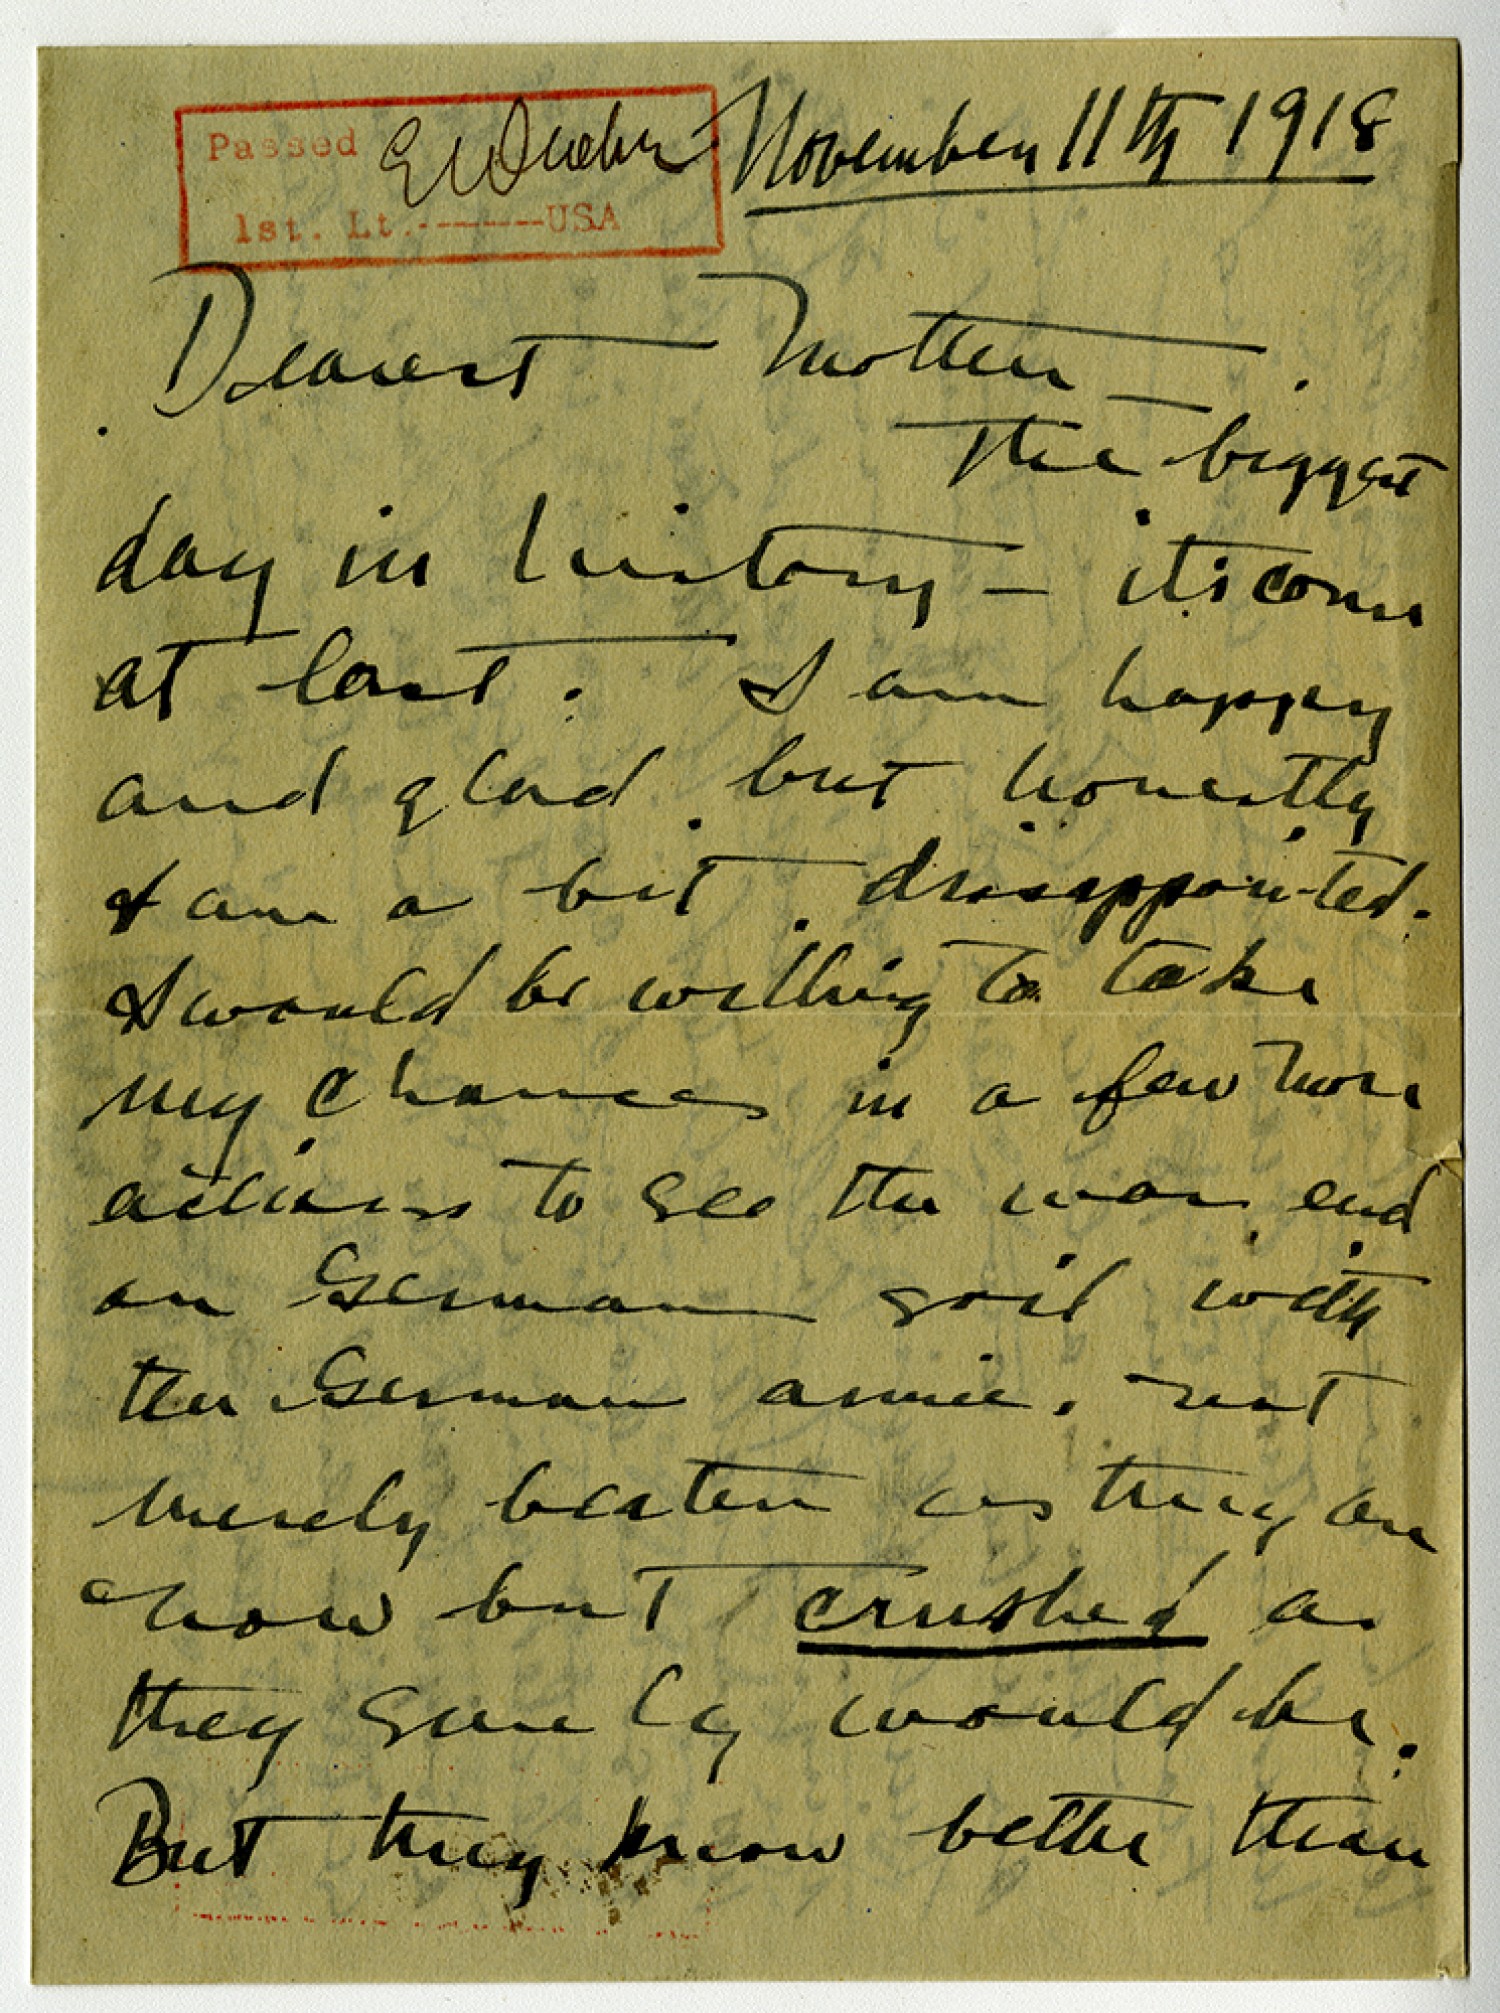 Passed
1st. Lt.-------USA
November 11th 1918
Dearest Mother—.
The biggest
day in history — its come
at last. I am happy
and glad but honestly
I am a bit disappointed.
I would be willing to take
my chances in a few more
actions to see the war end
on German soil with
the German armie. not
merely beaten as they are
now but crushed as
they surely would be.
But they know better than